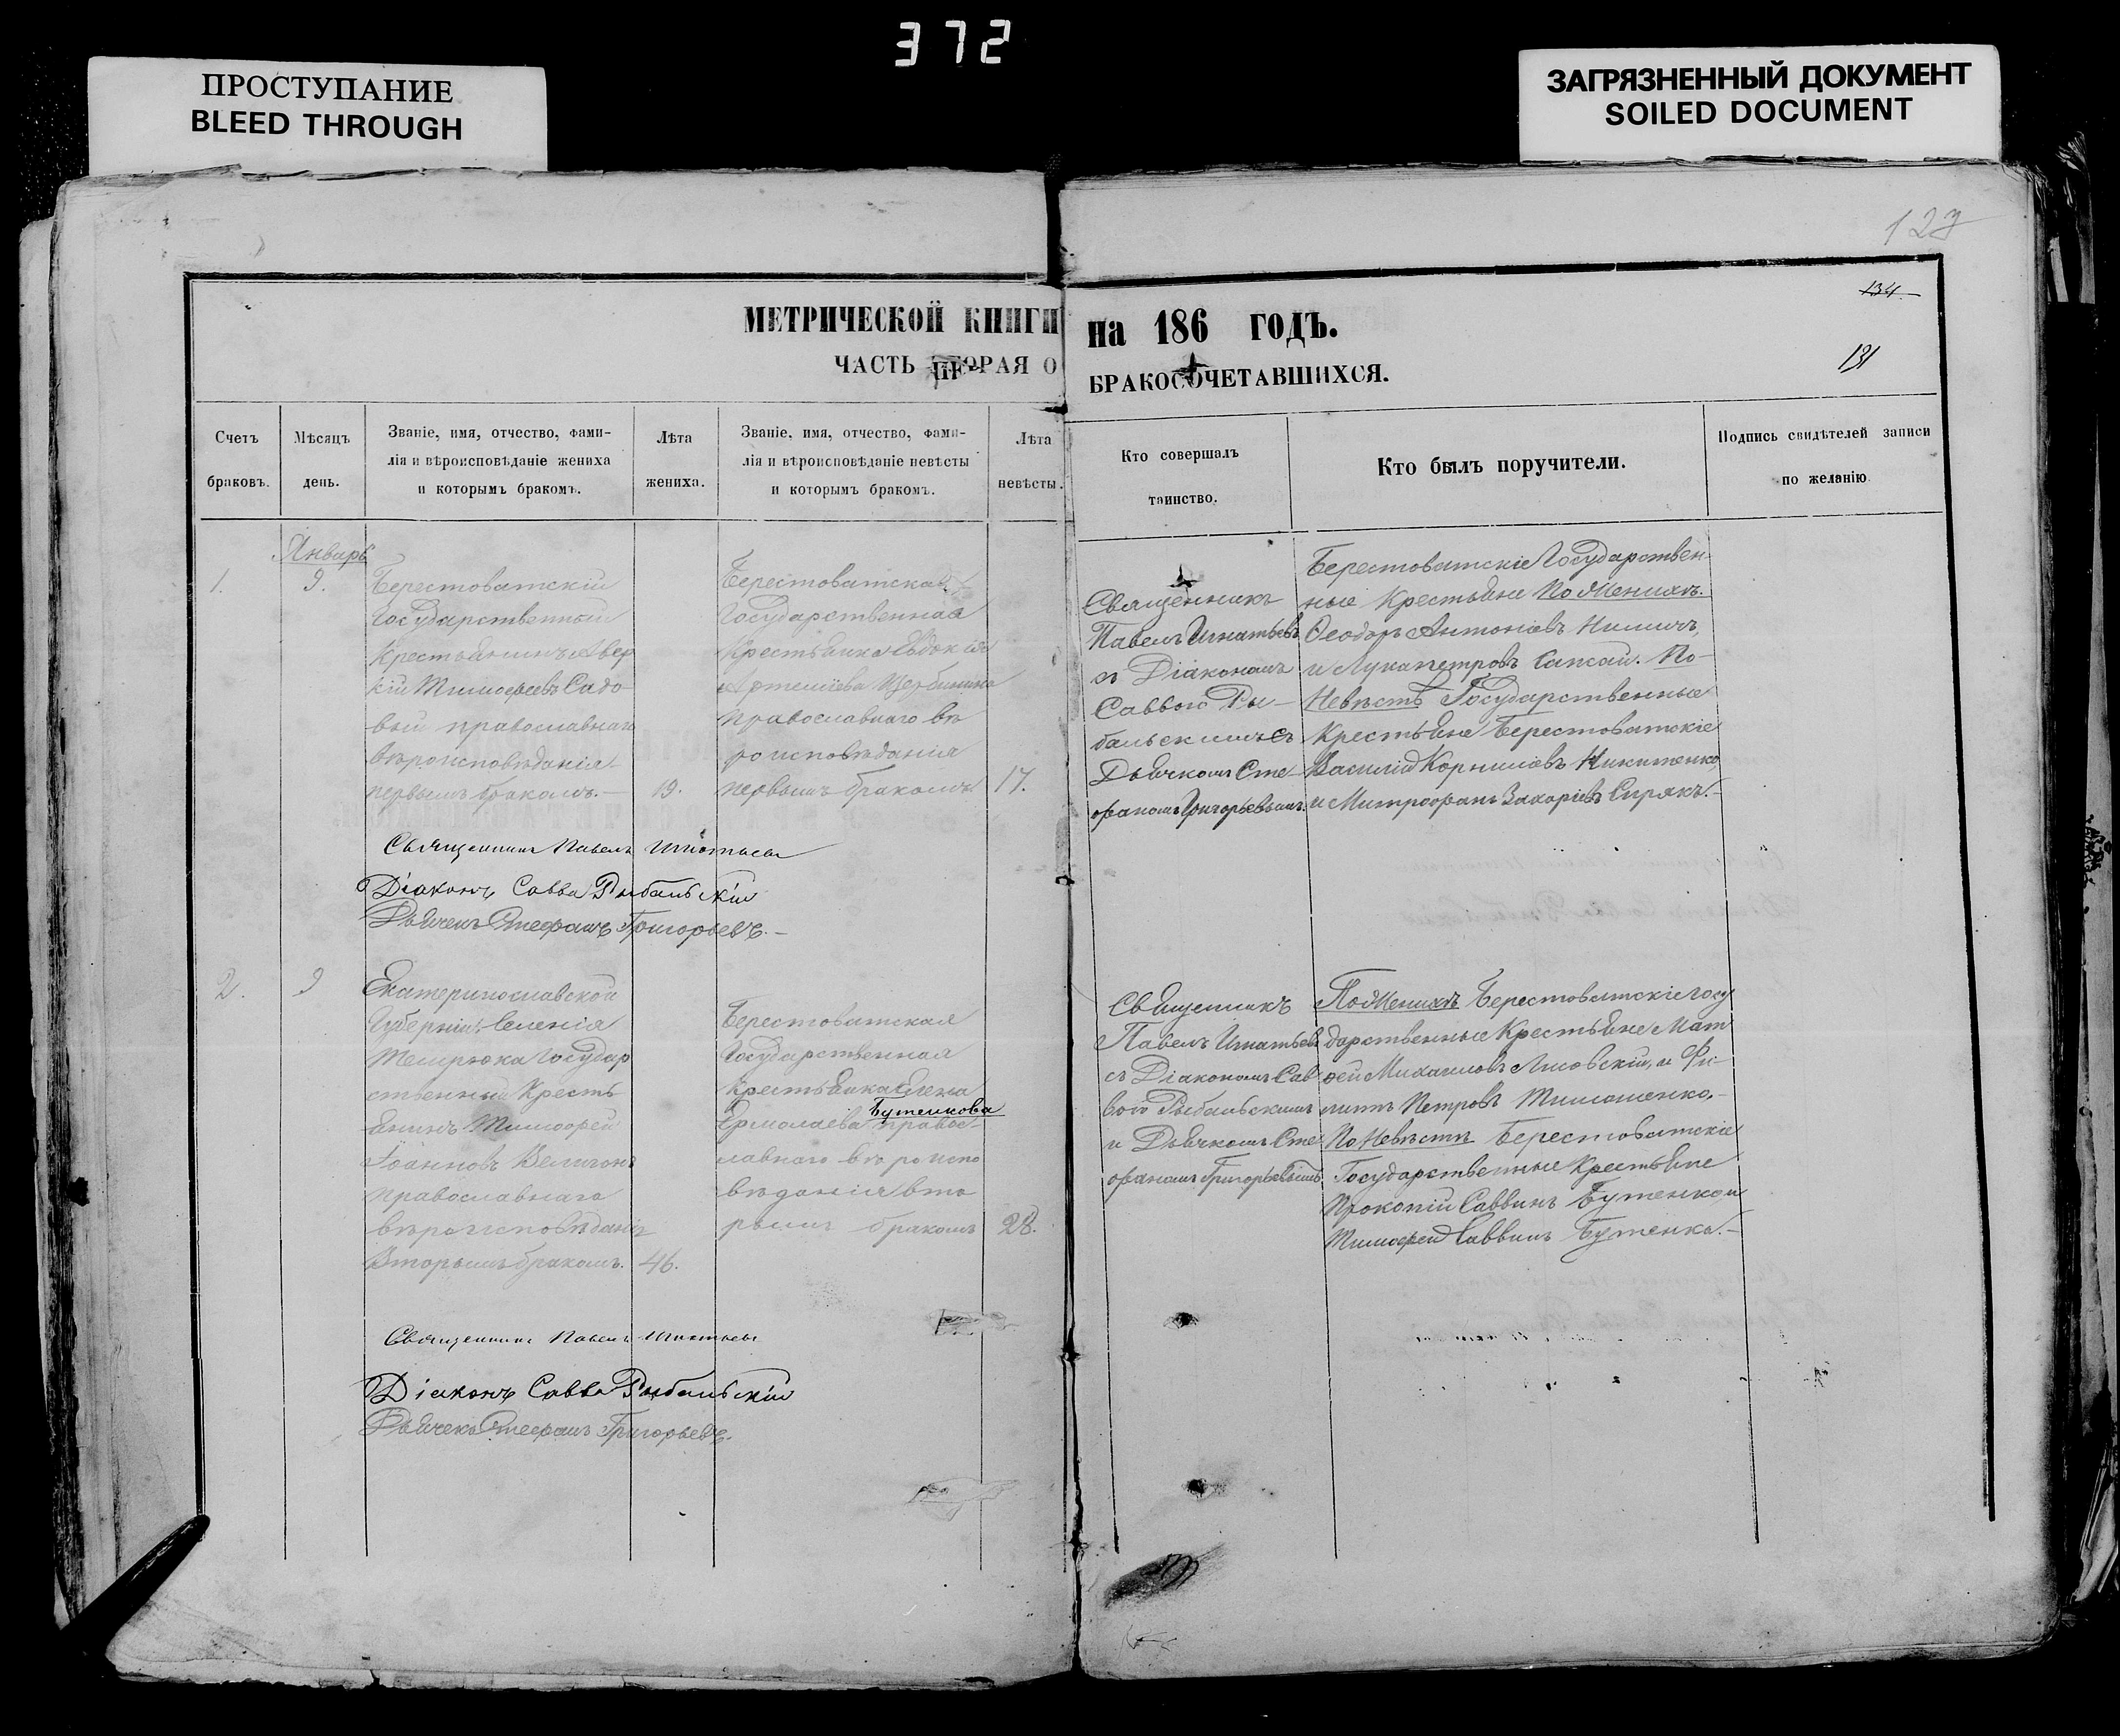 372
ПРОСТУПАНИЕ
BLEED THROUGH
ЗАГРЯЗНЕННЫЙ ДОКУМЕНТ
SOILED DOCUMENT
127
134
131
МЕТРИЧЕСКОЙ КНИГИ на 186 ГОДЪ.
ЧАСТЬ ВТОРАЯ О БРАКОСОЧЕТАВШИХСЯ.
Счетъ браковъ.
Мѣсяцъ день.
Званіе, имя, отчество, фами-
лія и вѣроисповѣданіе жениха
и которымъ бракомъ.
Лѣта жениха.
Званіе, имя, отчество, фами-
лія и вѣроисповѣданіе невѣсты
и которымъ бракомъ.
Лѣта невѣсты.
Кто совершалъ
таинство.
Кто былъ поручители.
Подпись свидѣтелей записи
по желанію.
Январь
1.
9.
Берестоватскій
Государственный
Крестьянинъ Авер
кій Тимофеевъ Садо-
вый православнаго
вѣроисповѣданія
первымъ бракомъ.—
19.
Берестоватская
Государственная
Крестьянка Евдокія
Артеміева Щербинина
православнаго вѣ
роисповѣданія
первымъ бракомъ
17.
Священникъ
Павелъ Игнатьевъ
съ Діакономъ
Саввою Ры-
бальскимъ съ
Дьячкомъ Сте-
фаномъ Григорьевымъ.
Берестоватскіе Государствен-
ные Крестьяне По Жениху.
Ѳеодоръ Антоніевъ
и Лука Петровъ Сапсай. По-
Невѣстѣ Государственные
Крестьяне Берестоватскіе
Василій Корниліевъ Никитенко,
и Митрофанъ Захаріевъ Спрякъ.—
Священникъ Павелъ Игнатьевъ
Діаконъ Савва Рыбальскій
Дьячекъ Стефанъ Григорьевъ.—
2.
9
Екатеринославской
Губерніи Селенія
Темрюка Государ
ственный Кресть
янинъ Тимофей
Іоанновъ
православнаго
вѣроисповѣданія
Вторымъ бракомъ.
46.
Берестоватская
Государственная
Крестьянка Елена
Бутенкова
Ермолаева право-
славнаго вѣроиспо
вѣданія вто
рымъ бракомъ
28.
Священникъ
Павелъ Игнатьевъ
съ Діакономъ Сав
вою Рыбальскимъ
и Дьячкомъ Сте
фаномъ Григорьевымъ
По Жениху Берестоватскіе Госу
дарственные Крестьяне Мат
ѳей Михаиловъ Лисовскій, и Фи-
липъ Петровъ Тимошенко,—
По Невѣстѣ Берестоватскіе
Государственные Крестьяне
Прокопій Саввинъ Бутенко и
Тимофей Саввинъ Бутенко.—
Священникъ Павелъ Игнатьевъ
Діаконъ Савва Рыбальскій
Дьячекъ Стефанъ Григорьевъ.